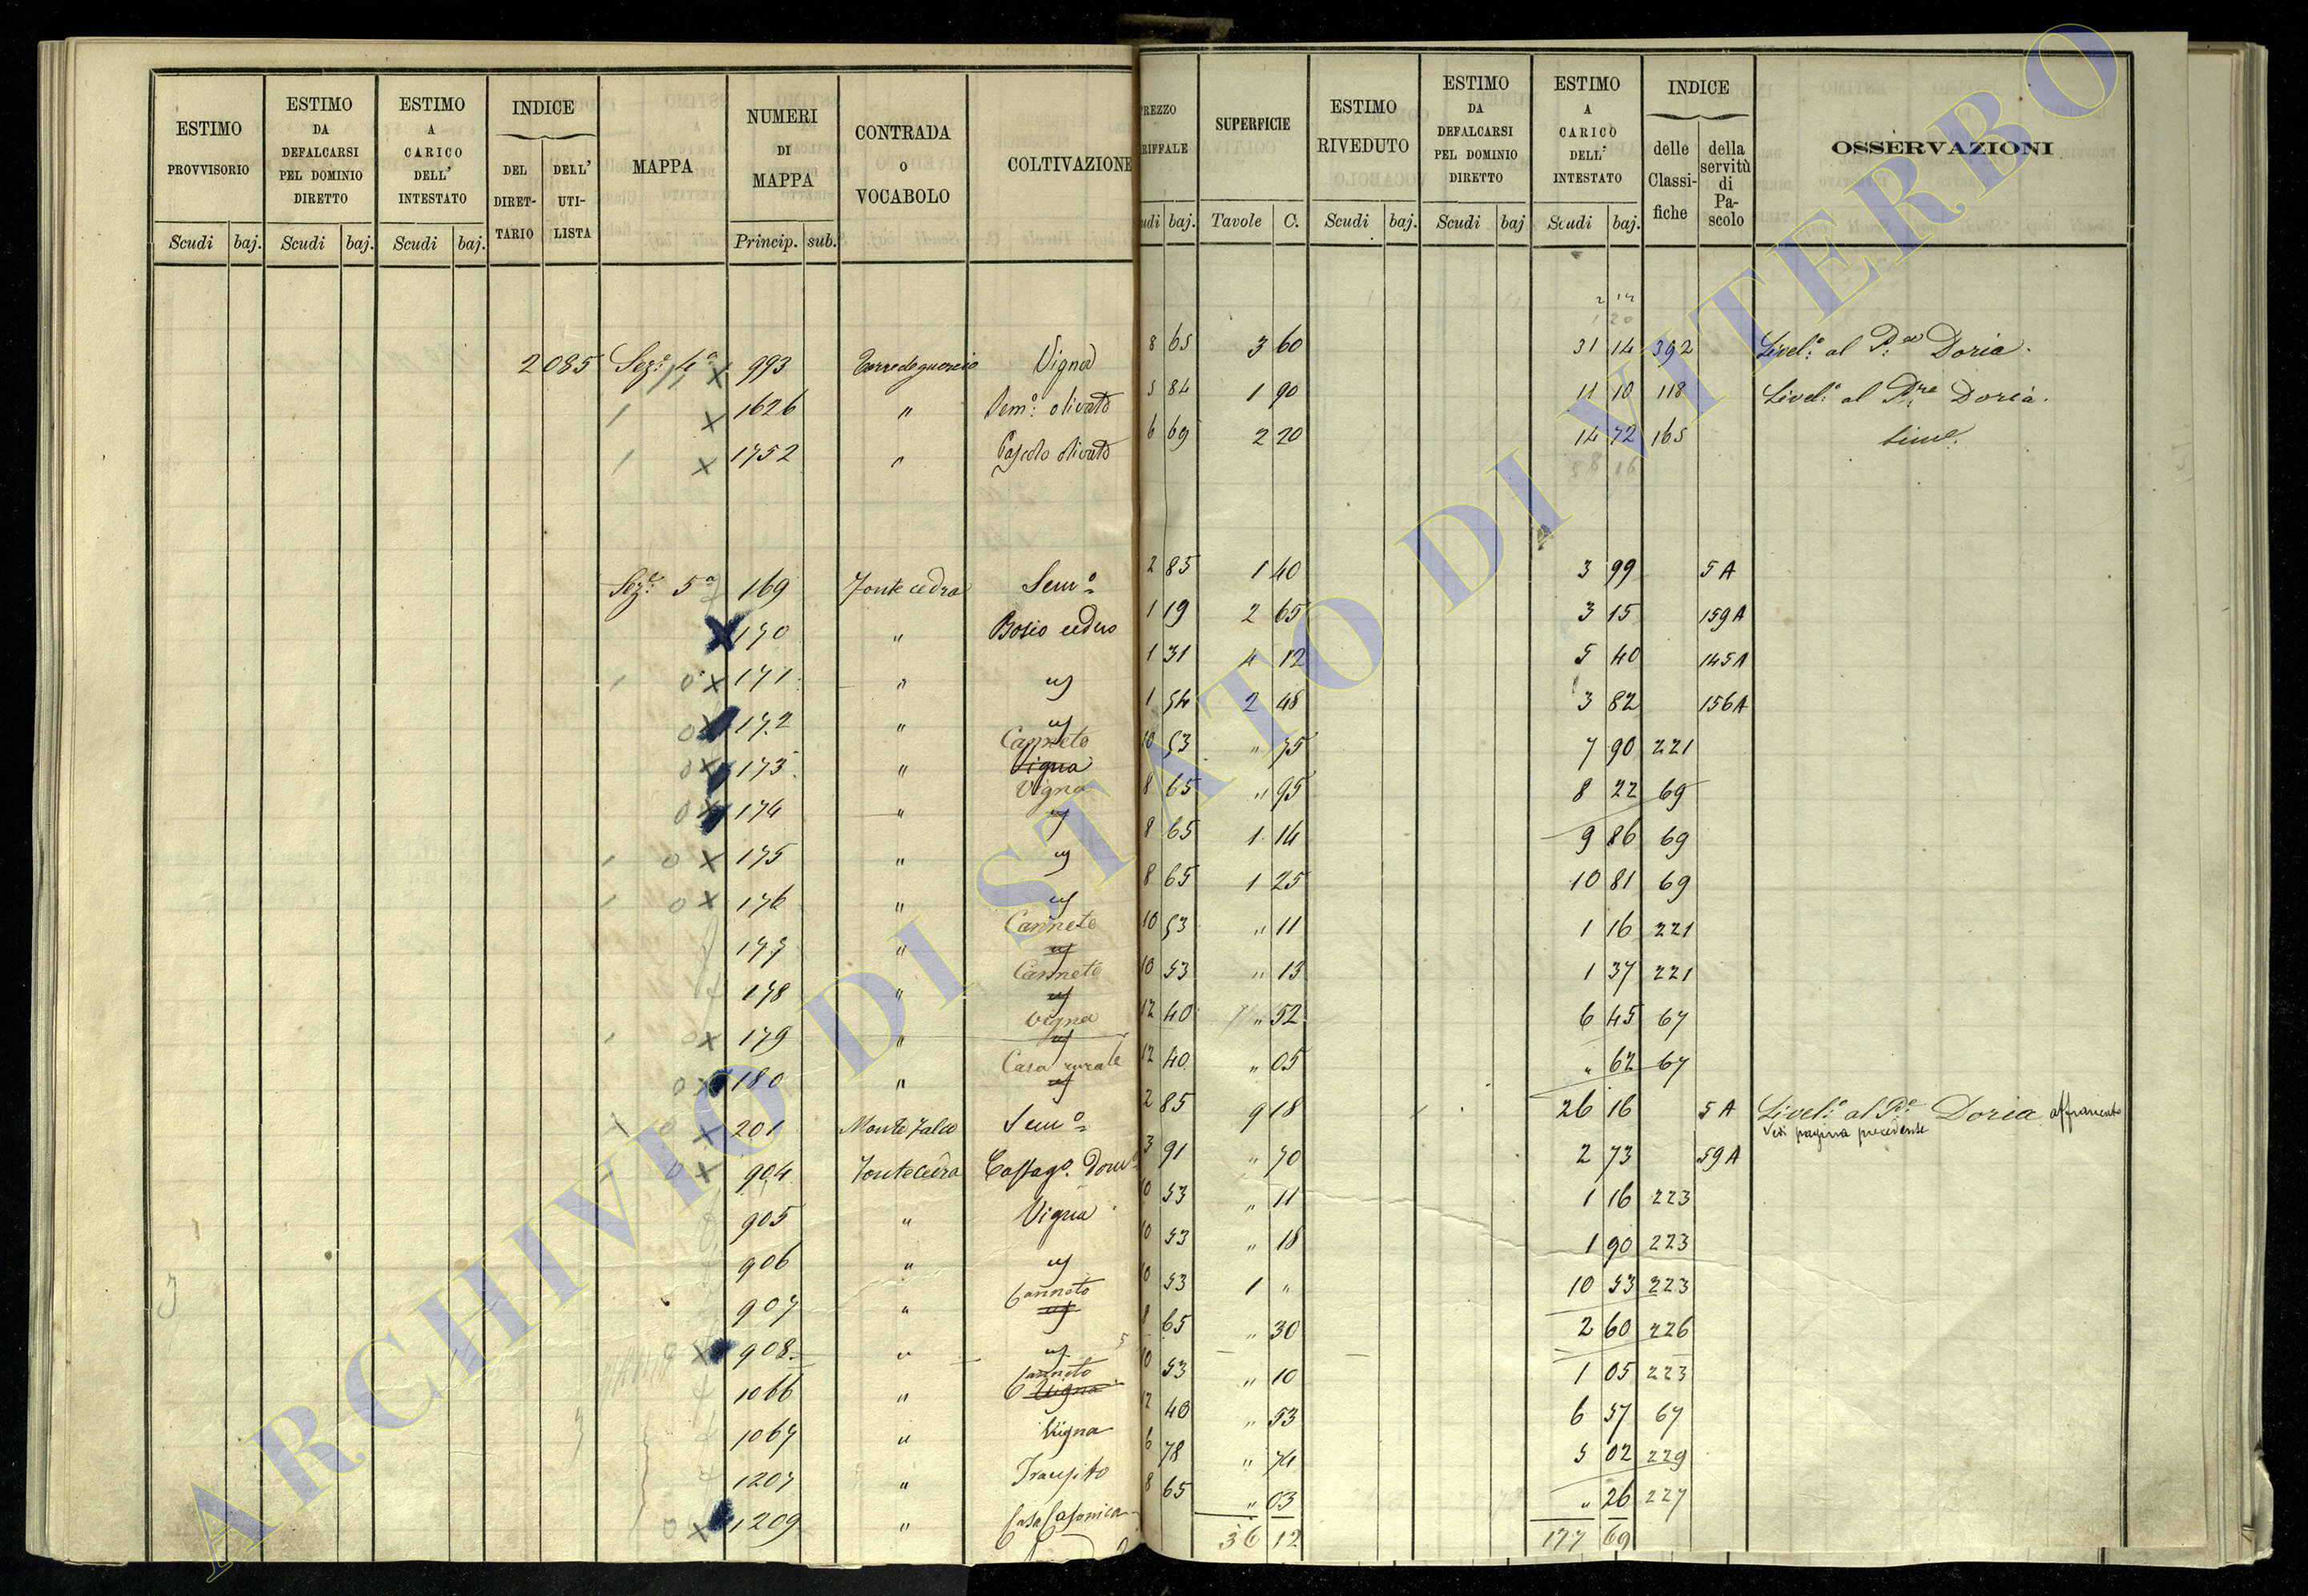 ESTIMO PROVVISORIO | ESTIMO DA DEFALCARSI PEL DOMINIO DIRETTO | ESTIMO A CARICO DELL' INTESTATO | INDICE | MAPPA | NUMERI DI MAPPA | CONTRADA O VOCABOLO | COLTIVAZIONE | REZZO RIFFALE | SUPERFICIE | ESTIMO RIVEDUTO | ESTIMO DA DEFALCARSI PEL DOMINIO DIRETTO | ESTIMO A CARICO DELL' INTESTATO | INDICE | OSSERVAZIONI
DEL DIRET-TARIO | DELL' UTI-LISTA | delle Classi-fiche | della servitù di Pa-scolo
Scudi | baj. | Scudi | baj. | Scudi | baj. | Princip. | sub. | udi | baj. | Tavole | C. | Scudi | baj. | Scudi | baj | Scudi | baj.
2 14
1 20
2085 Sez.e 4a X 993 Vigna 8 65 3 60 31 14 392 Livel.o al P. Doria.
X 1626 " Sem.o olivato 5 84 1 90 11 10 118 Livel.o al P.re Doria.
X 1752 " Pascolo olivato 6 69 2 20 14 72 165 Simle.
58 16
Sez.e 5a 169 Fonte cedra Sem.o 2 85 1 40 3 99 5 A
X 170 " Bosco ceduo 1 19 2 65 3 15 159 A
0 X 171 " " 1 31 4 12 5 40 145 A
0 X 172 " " 1 54 2 48 3 82 156 A
0 X 173 " Canneto Vigna 10 53 " 75 7 90 221
0 X 174 " Vigna " 8 65 " 95 8 22 69
0 X 175 " " 8 65 1 14 9 86 69
0 X 176 " " 8 65 1 25 10 81 69
177 " Canneto " 10 53 " 11 1 16 221
178 " Canneto " 10 53 " 13 1 37 221
0 X 179 " Vigna " 12 40 " 52 6 45 67
0 X 180 " Casa rurale " 12 40 " 05 " 62 67
0 X 201 Monte Falco Sem.o 2 85 9 18 26 16 5 A Livel.o al P.e Doria affrancato
Vedi pagina precedente
0 X 904 Fontecedra Castag.o Dom 3 91 " 70 2 73 59 A
905 " Vigna 10 53 " 11 1 16 223
906 " " 10 53 " 18 1 90 223
907 " Canneto " 10 53 1 " 10 53 223
X 908 " " 8 65 " 30 2 60 226
1066 " Canneto Vigna 10 53 " 10 1 05 223
1067 " Vigna 12 40 " 53 6 57 67
1207 " Transito 6 78 " 74 5 02 229
0 X 1209 " Casa 8 65 " 03 " 26 227
36 12 177 69
ARCHIVIO DI STATO DI VITERBO